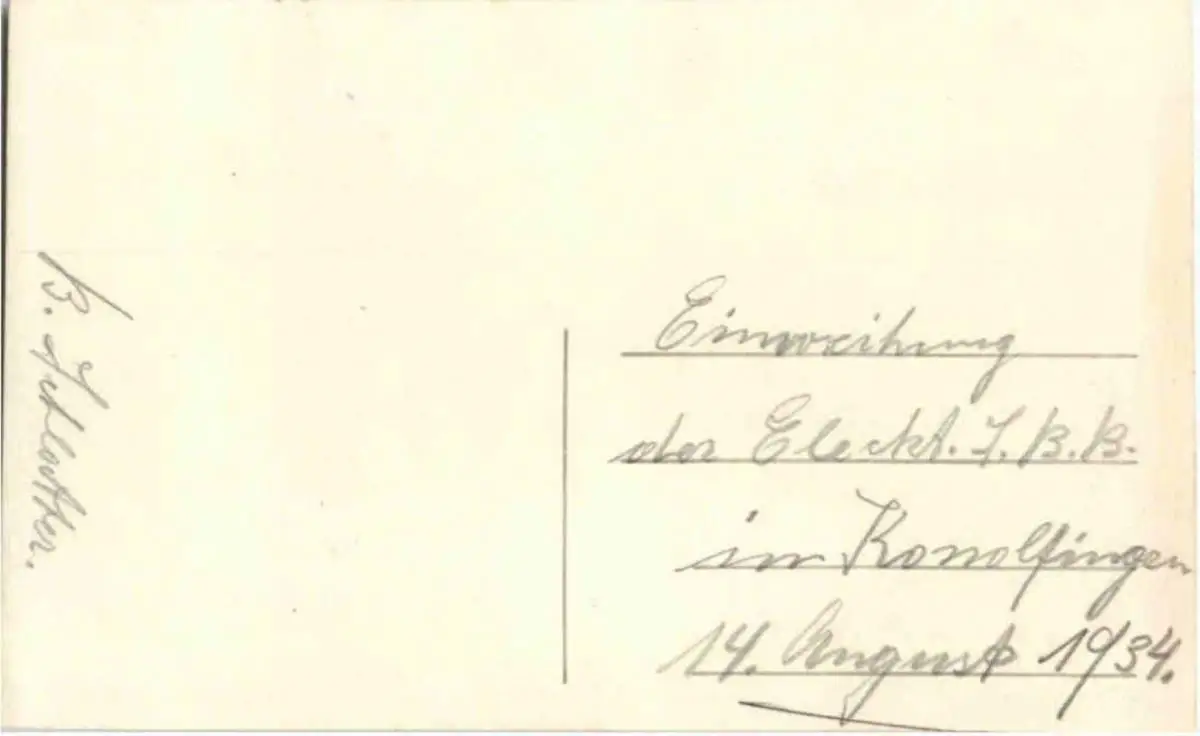 B. Schlatter.
Einweihung
der Eleckt. S.B.B.
in Konolfingen
14. August 1934.